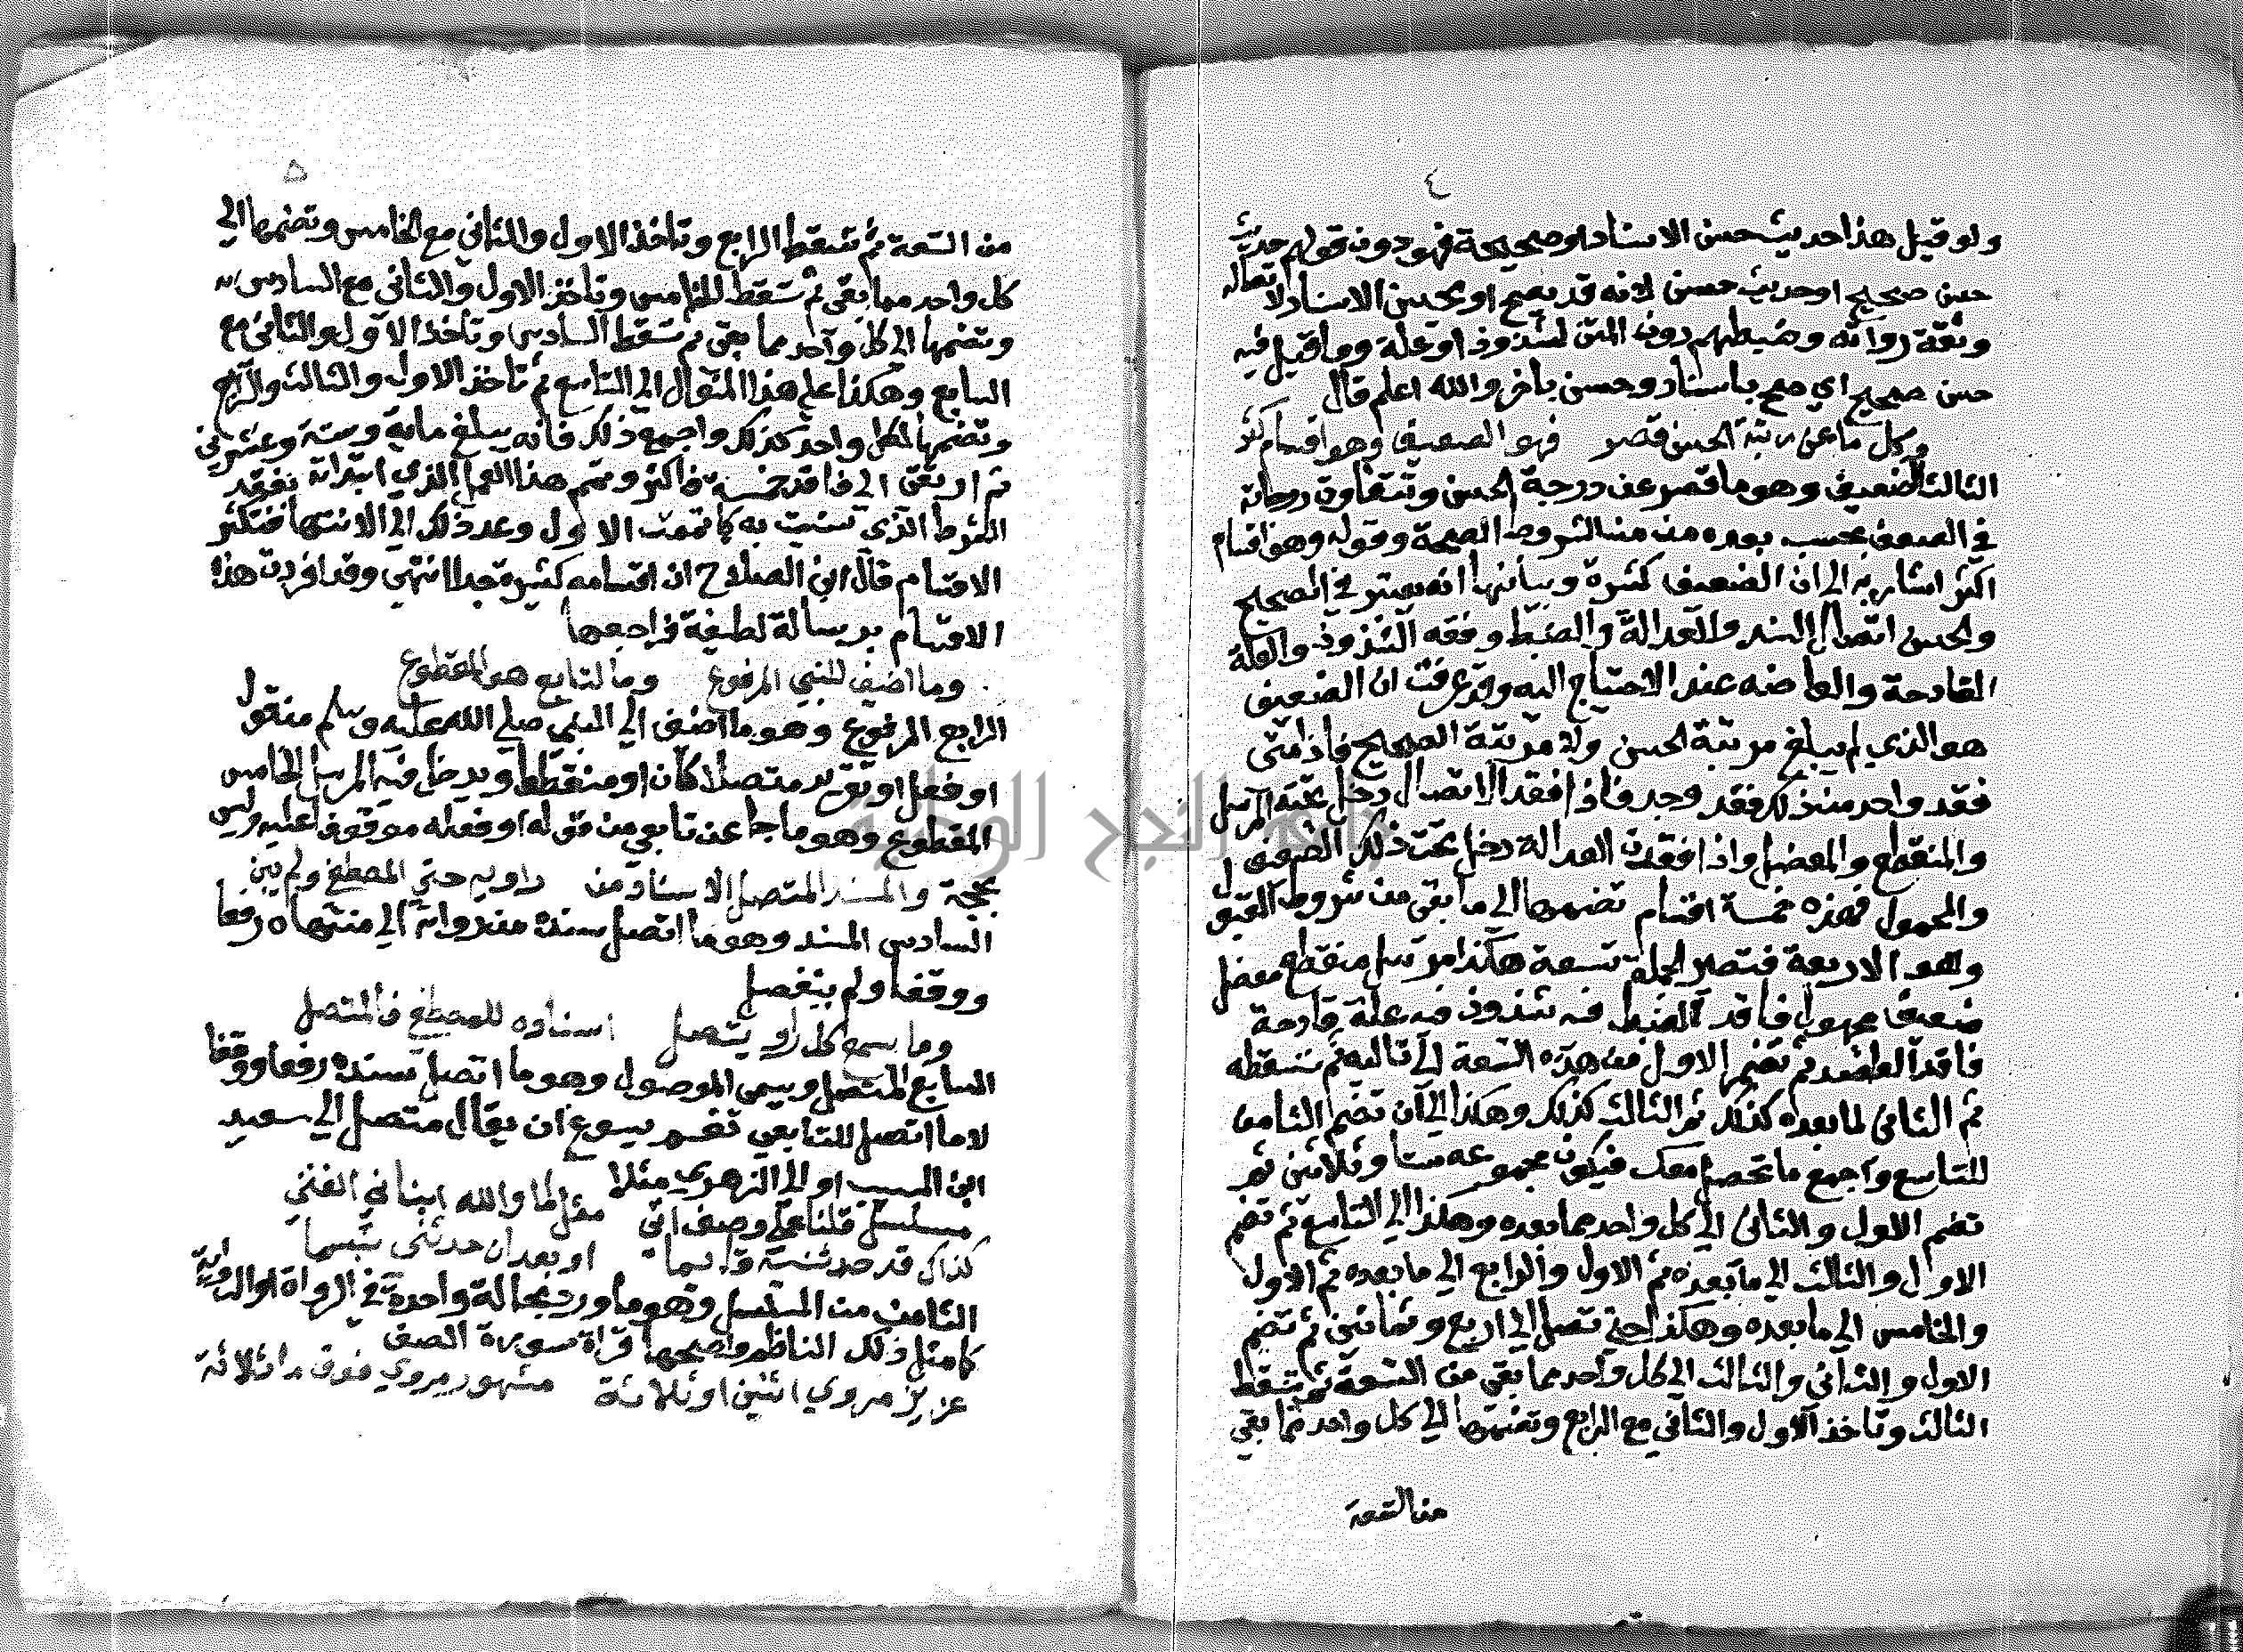 ٤
ولو قيل هذا حديث حسن الاسناد او صحيحة فهو دون قولهم حديث
حسن صحيح او حديث حسن لانه قد يصح او يحسن الاسناد لاتصاله
وثقة رواته وضبطهم دون المتن لشذوذ او علة وما قيل فيه
حسن صحيح اي صح باسناد وحسن باخر والله اعلم قال
وكل ما عن رتبة الحسن قصر فهو الضعيف وهو اقسام كثر
الثالث الضعيف وهو ما قصر عن درجة الحسن وتتفاوت درجاته
في الضعف بحسب بعده من شروط الصحة وقوله وهو اقسام
اكثر اشار به الى ان الضعيف كثيرة وبيانها انه يعتبر في الصحيح
والحسن اتصال السند والعدالة والضبط وفقه الشذوذ والعلة
القادحة والعاضه عند الاحتياج اليه وقد عرفت ان الضعيف
هو الذي لم يبلغ مرتبة الحسن ولا مرتبة الصحيح فاذا متى
فقد واحد من ذلك فقد وجد فاذا فقد الاتصال دخل تحته المرسل
والمنقطع والمعضل واذا فقدت العدالة دخل تحت ذلك الضعيف
والمجهول فهذه خمسة اقسام تضمها الى ما بقي من شروط القبول
وهو الاربعة فتصير الجملة تسعة هكذا مرسل منقطع معضل
ضعيف مجهول فاقد الضبط فيه شذوذ فيه علة قادحة
فاقد العاضد ثم تضم الاول من هذه التسعة الى تاليه ثم تسقطه
ثم الثاني لما بعده كذلك ثم الثالث كذلك وهكذا الى ان تضم الثامن
للتاسع واجمع ما تحصل معك فيكون مجموعه ستا وثلاثين ثم
تضم الاول والثاني الى كل واحد مما بعده وهكذا الى التاسع ثم تضم
الاول والثالث الى ما بعده ثم الاول والرابع الى ما بعده ثم الاول
والخامس الى ما بعده وهكذا حتى تصل الى اربع وثمانين ثم تضم
الاول والثاني والثالث الى كل واحد مما بقي من التسعة ثم تسقط
الثالث وتاخذ الاول والثاني مع الرابع وتضمها الى كل واحد مما بقي
من التسعة
٥
من التسعة ثم تسقط الرابع وتاخذ الاول والثاني مع الخامس وتضمها الى
كل واحد مما بقي ثم تسقط الخامس وتاخذ الاول والثاني مع السادس
وتضمها الى كل واحد مما بقي ثم تسقط السادس وتاخذ الاول والثاني مع
السابع وهكذا على هذا المنوال الى التاسع ثم تاخذ الاول والثالث والرابع
وتضمها لكل واحد كذلك واجمع ذلك فانه يبلغ ماية وستة وعشرين
ثم ارتق الى فاقد خمسة فاكثر وتمم هذا العمل الذي ابتدات بفقد
الشرط الذي ثنيت به كما تممت الاول وعد ذلك الى الانتها فتكثر
الاقسام قال ابن الصلاح ان اقسامه كثيرة جدا انتهي وقد افردت هذا
الاقسام برسالة لطيفة فراجعها
وما اضيف للنبي المرفوع وما لتابع هو المقطوع
الرابع المرفوع وهو ما اضيف الى النبي صلي الله عليه وسلم من قول
او فعل او تقرير متصلا كان او منقطعا ويدخل فيه المرسل الخامس
المقطوع وهو ما جا عن تابعي من قوله او فعله موقوفا عليه وليس
بحجة والمسند المتصل الاسناد من راويه حتي المصطفي ولم يبن
السادس المسند وهو ما اتصل سنده من رواته الى منتهاه رفعا
ووقفا ولم ينفصل
وما بسمع كل راو يتصل اسناده للمصطفي فالمتصل
السابع المتصل ويسمى الموصول وهو ما اتصل سنده رفعا ووقفا
لا ما اتصل للتابعي نعم يسوغ ان يقال متصل الي سعيد
ابن المسيب او الى الزهري مثلا
مسلسل قل ما على وصف اتي مثل اما والله انباني الفتي
كذاك قد حدثنيه قايما او بعد ان حدثني تبسما
الثامن من المسلسل وهو ما ورد بحالة واحدة في الرواة او الرواية
كما مثل ذلك الناظم واصحها قراة سورة الصف
عزيز مروي اثنين او ثلاثة مشهور مروي فوق ما ثلاثة
جامعة النجاح الوطنية